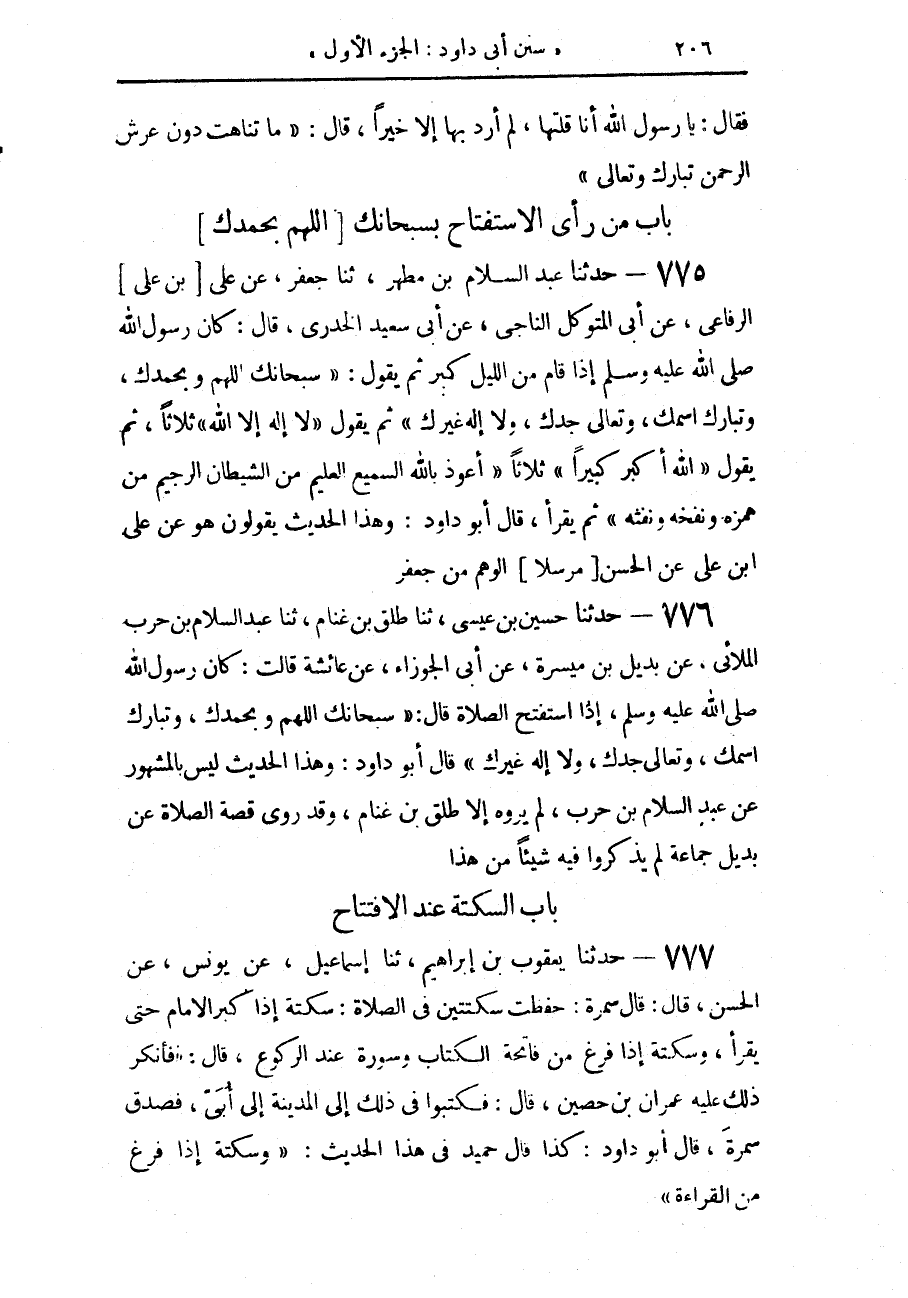 ٢٠٦ « سنن أبى داود : الجزء الأول »
فقال : يا رسول الله أنا قلتها ، لم أرد بها إلا خيراً ، قال : « ما تناهت دون عرش
الرحمن تبارك وتعالى »
باب من رأى الاستفتاح بسبحانك [ اللهم بحمدك ]
٧٧٥ — حدثنا عبد السلام بن مطهر ، ثنا جعفر ، عن على [ بن على ]
الرفاعى ، عن أبى المتوكل الناجى ، عن أبى سعيد الخدرى ، قال : كان رسول الله
صلى الله عليه وسلم إذا قام من الليل كبر ثم يقول : « سبحانك اللهم و بحمدك ،
وتبارك اسمك ، وتعالى جدك ، ولا إله غيرك » ثم يقول « لا إله إلا الله » ثلاثاً ، ثم
يقول « الله أكبر كبيراً » ثلاثاً « أعوذ بالله السميع العليم من الشيطان الرجيم من
همزه ونفخه ونفثه » ثم يقرأ ، قال أبو داود : وهذا الحديث يقولون هو عن على
ابن على عن الحسن [ مرسلا ] الوهم من جعفر
٧٧٦ — حدثنا حسين بن عيسى ، ثنا طلق بن غنام ، ثنا عبد السلام بن حرب
الملائى ، عن بديل بن ميسرة ، عن أبى الجوزاء ، عن عائشة قالت : كان رسول الله
صلى الله عليه وسلم ، إذا استفتح الصلاة قال : « سبحانك اللهم و بحمدك ، وتبارك
اسمك ، وتعالى جدك ، ولا إله غيرك » قال أبو داود : وهذا الحديث ليس بالمشهور
عن عبد السلام بن حرب ، لم يروه إلا طلق بن غنام ، وقد روى قصة الصلاة عن
بديل جماعة لم يذكروا فيه شيئاً من هذا
باب السكتة عند الافتتاح
٧٧٧ — حدثنا يعقوب بن إبراهيم ، ثنا إسماعيل ، عن يونس ، عن
الحسن ، قال : قال سمرة : حفظت سكتتين فى الصلاة : سكتة إذا كبر الامام حتى
يقرأ ، وسكتة إذا فرغ من فاتحة الكتاب وسورة عند الركوع ، قال : فأنكر
ذلك عليه عمران بن حصين ، قال : فكتبوا فى ذلك إلى المدينة إلى أُبَىّ ، فصدق
سمرةَ ، قال أبو داود : كذا قال حميد فى هذا الحديث : « وسكتة إذا فرغ
من القراءة »